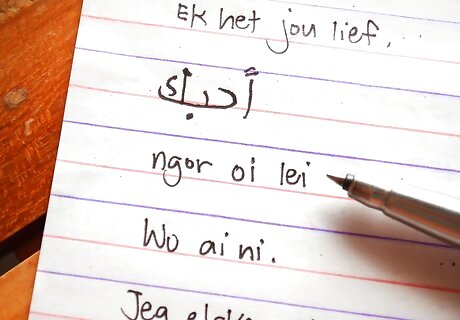 Ek het jou lief.
أحبك
ngor oi lei
Wo ai ni.
Jeg